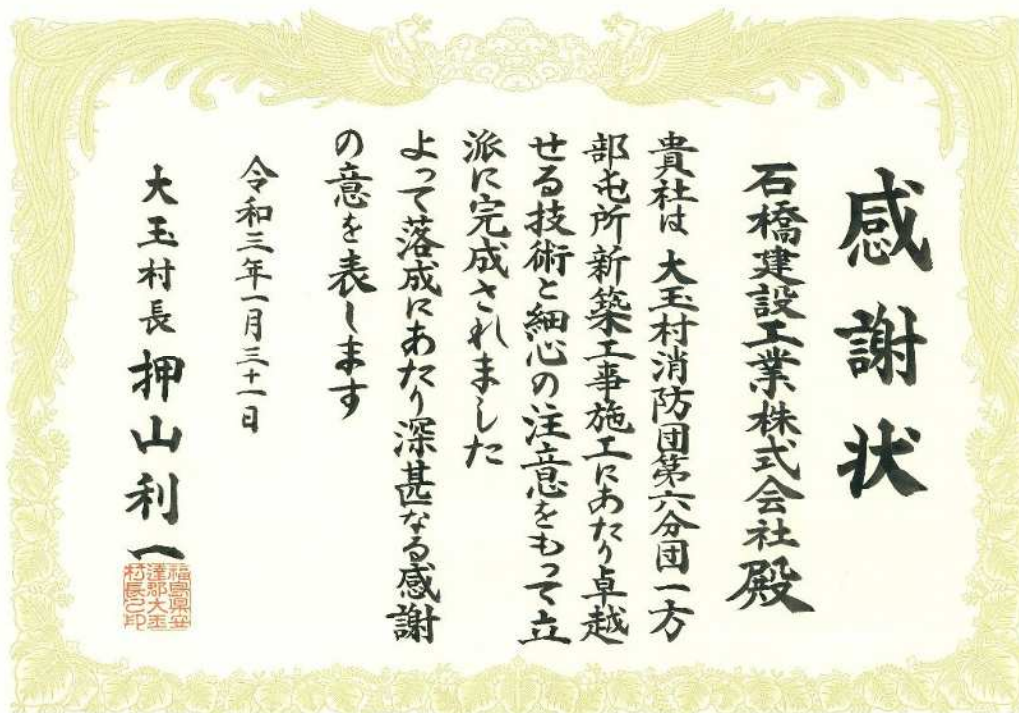 感謝状
石橋建設工業株式会社殿
貴社は大玉村消防団第六分団一方
部屯所新築工事施工にあたり卓越
せる技術と細心の注意をもって立
派に完成されました
よって落成にあたり深甚なる感謝
の意を表します
令和三年一月三十一日
大玉村長 押山利一
福島県安
達郡大玉
村長之印